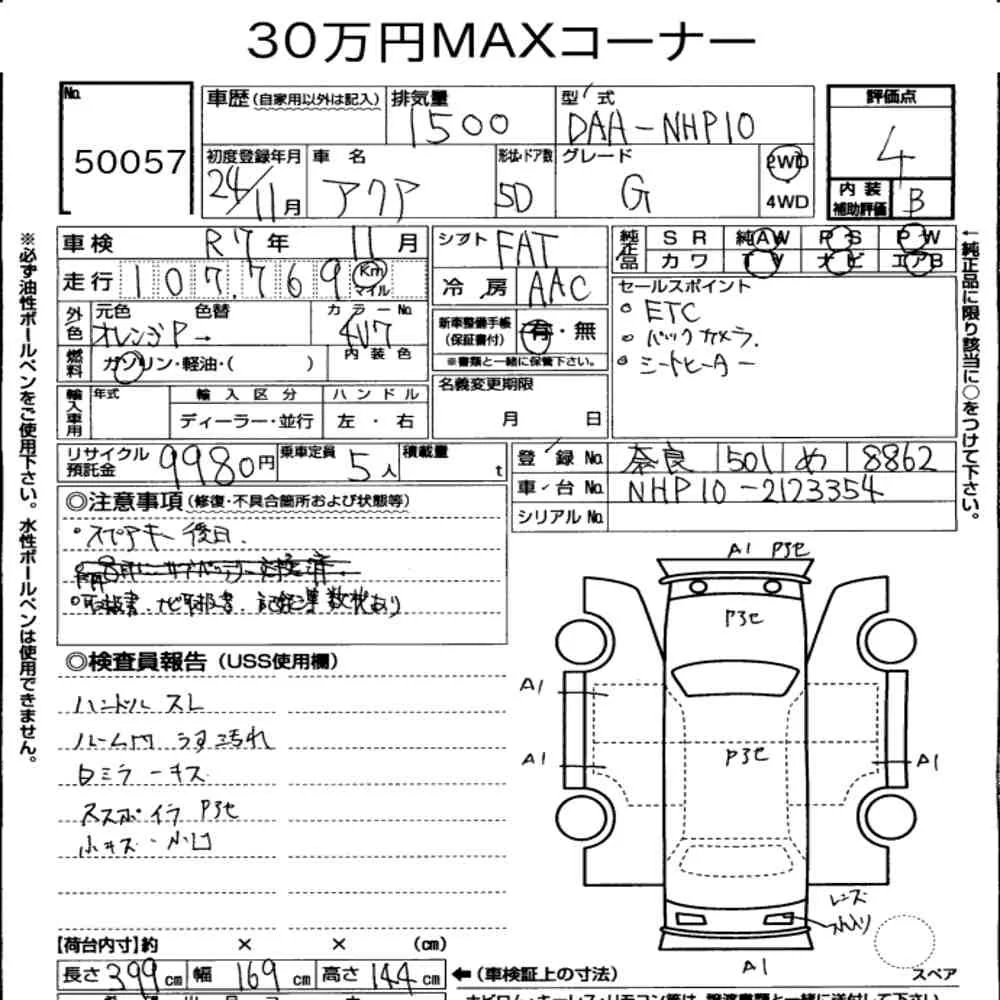 30万円MAXコーナー
No. 50057
車歴 (自家用以外は記入) 排気量 1500 型式 DAA-NHP10 評価点 4
初度登録年月 24/11月 車名 アクア 形状・ドア数 5D グレード G 2WD 4WD 内装補助評価 B
車検 R7年 11月 シフト FAT 純正品 SR 純AW PS PW
走行 107.769 Km マイル 冷房 AAC カワ TV ナビ エアB
外色 元色 オレンジP 色替 → カラーNo. 4V7 内装色
燃料 ガソリン・軽油・( )
新車整備手帳(保証書付) 有・無
※書類と一緒に保管下さい。
セールスポイント
◦ ETC
◦ バックカメラ.
◦ シートヒーター
輸入車用 年式 輸入区分 ハンドル 名義変更期限
ディーラー・並行 左・右 月 日
リサイクル預託金 9980円 乗車定員 5人 積載量 t
登録No. 奈良 501 め 8862
車台No. NHP10-2123354
シリアルNo.
◎注意事項(修復・不具合箇所および状態等)
◦スペアキー 後日.
◦取扱書、ナビ取扱書、記録簿数枚あり
◎検査員報告(USS使用欄)
ハンドル スレ
ルーム内 うす汚れ
白ミラーキズ
スポイラ P3セ
小キズ・小凹
A1 P3セ
P3セ
A1
A1 P3セ A1
レンズ
A1
スペア
【荷台内寸】約 × × (cm)
長さ 399cm 幅 169cm 高さ 144cm ←(車検証上の寸法)
※必ず油性ボールペンをご使用下さい。水性ボールペンは使用できません。
←純正品に限り該当に○をつけて下さい。